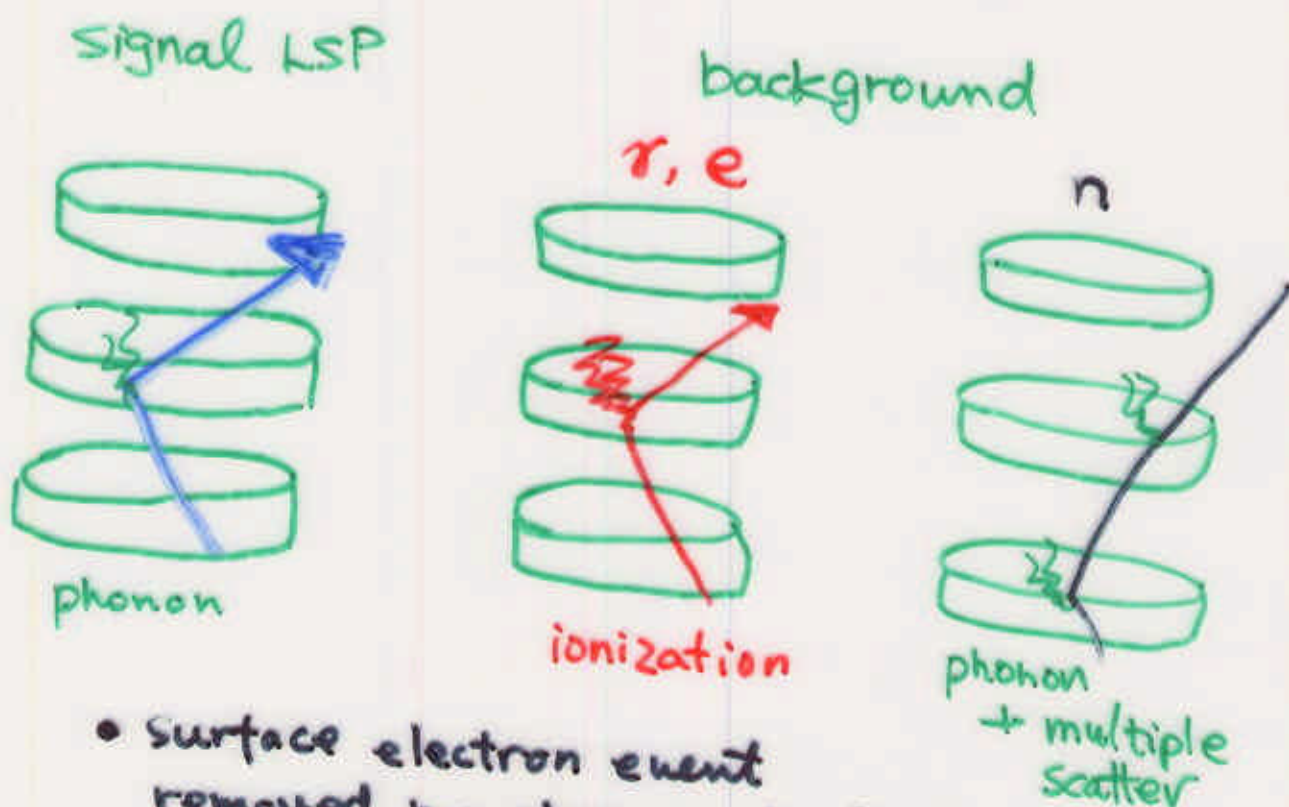 signal LSP
background
γ, e
n
phonon
ionization
phonon
+ multiple
scatter
• surface electron event
removed